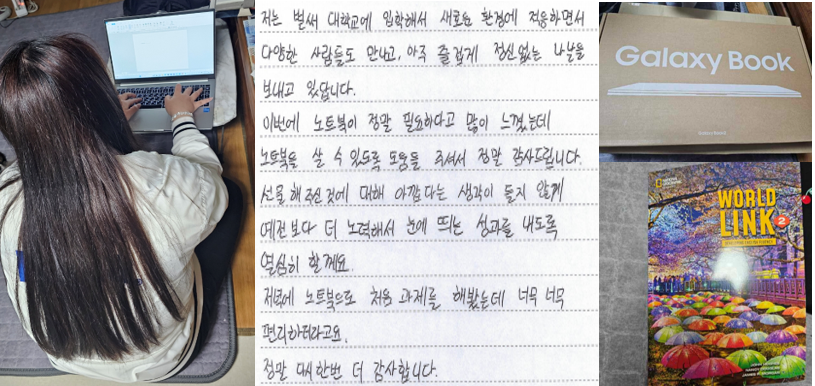 저는 벌써 대학교에 입학해서 새로운 환경에 적응하면서
다양한 사람들도 만나고, 아주 즐겁게 정신없는 나날을
보내고 있답니다.
이번에 노트북이 정말 필요하다고 많이 느꼈는데
노트북을 살 수 있도록 도움을 주셔서 정말 감사드립니다.
선물해주신것에 대해 아깝다는 생각이 들지 않게
예전보다 더 노력해서 눈에 띄는 성과를 내도록
열심히 할게요.
저녁에 노트북으로 처음 과제를 해봤는데 너무 너무
편리하더라고요.
정말 다시한번 더 감사합니다.
Galaxy Book
WORLD
LINK 2